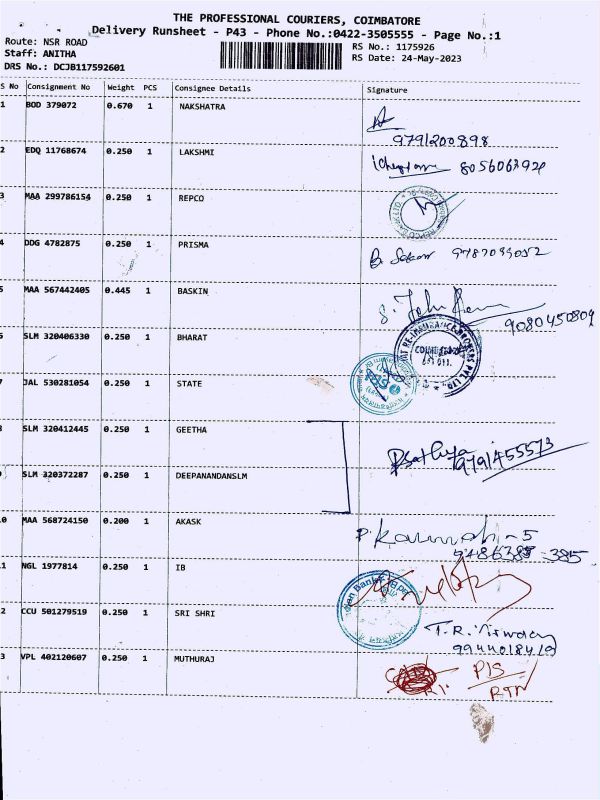 THE PROFESSIONAL COURIERS, COIMBATORE
Delivery Runsheet - P43 - Phone No.:0422-3505555 - Page No.:1
Route: NSR ROAD
RS No.: 1175926
Staff: ANITHA
RS Date: 24-May-2023
DRS No.: DCJB117592601
S No Consignment No Weight PCS Consignee Details Signature
1 BOD 379072 0.670 1 NAKSHATRA
9791200898
2 EDQ 11768674 0.250 1 LAKSHMI
8056063920
3 MAA 299786154 0.250 1 REPCO
4 DDG 4782875 0.250 1 PRISMA
9787099052
5 MAA 567442405 0.445 1 BASKIN
9080450809
6 SLM 320406330 0.250 1 BHARAT
7 JAL 530281054 1 STATE
8 SLM 320412445 0.250 1 GEETHA
9791455573
9 SLM 320372287 0.250 1 DEEPANANDANSLM
0 MAA 568724150 0.200 1 AKASK
1 NGL 1977814 0.250 1 IB
2 CCU 501279519 0.250 1 SRI SHRI
9944018419
3 VPL 402120607 0.250 1 MUTHURAJ
RTN